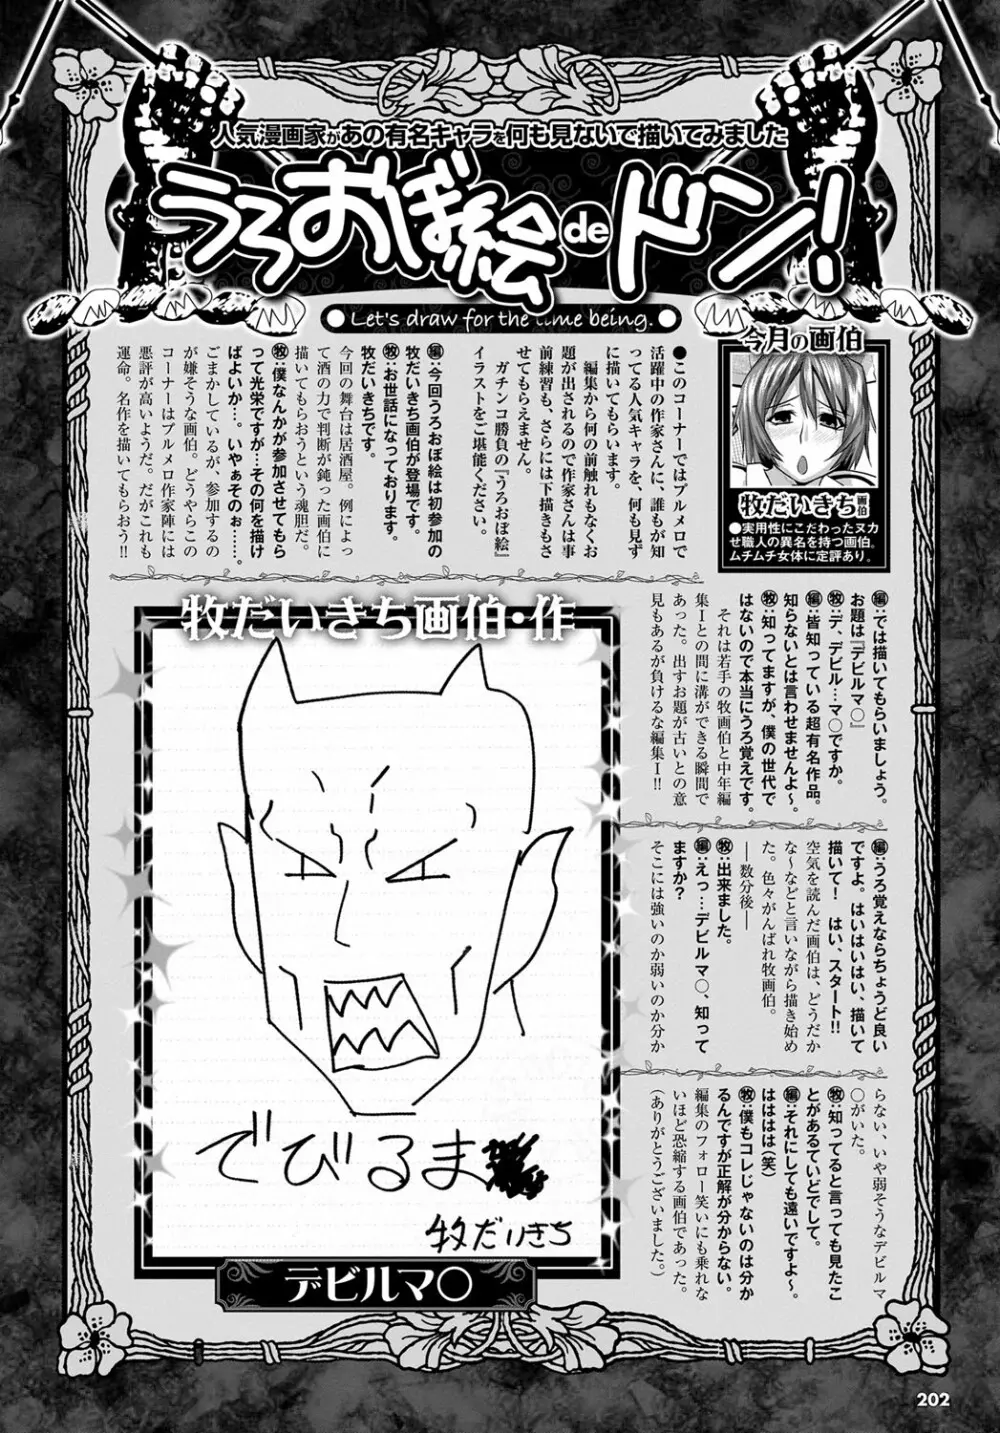 人気漫画家があの有名キャラを何も見ないで描いてみました
うろおぼ絵deドン!
Let's draw for the time being.
今月の画伯
牧だいきち画伯
●実用性にこだわったヌカ
せ職人の異名を持つ画伯。
ムチムチ女体に定評あり。
●このコーナーではプルメロで
活躍中の作家さんに、誰もが知
ってる人気キャラを、何も見ず
に描いてもらいます。
編集から何の前触れもなくお
題が出されるので作家さんは事
前練習も、さらには下描きもさ
せてもらえません。
ガチンコ勝負の『うろおぼ絵』
イラストをご堪能ください。
編:今回うろおぼ絵は初参加の
牧だいきち画伯が登場です。
牧:お世話になっております。
牧だいきちです。
今回の舞台は居酒屋。例によっ
て酒の力で判断が鈍った画伯に
描いてもらおうという魂胆だ。
牧:僕なんかが参加させてもら
って光栄ですが…その何を描け
ばよいか…。いやぁそのぉ……。
ごまかしているが、参加するの
が嫌そうな画伯。どうやらこの
コーナーはプルメロ作家陣には
悪評が高いようだ。だがこれも
運命。名作を描いてもらおう!!
編:では描いてもらいましょう。
お題は『デビルマ○』
牧:デ、デビル…マ○ですか。
編:皆知っている超有名作品。
知らないとは言わせませんよ～。
牧:知ってますが、僕の世代で
はないので本当にうろ覚えです。
それは若手の牧画伯と中年編
集Iとの間に溝ができる瞬間で
あった。出すお題が古いとの意
見もあるが負けるな編集I!!
編:うろ覚えならちょうど良い
ですよ。はいはいはい、描いて
描いて! はい、スタート!!
空気を読んだ画伯は、どうだか
な～などと言いながら描き始め
た。色々がんばれ牧画伯。
―数分後―
牧:出来ました。
編:えっ…デビルマ○、知って
ますか?
そこには強いのか弱いのか分か
らない、いや弱そうなデビルマ
○がいた。
牧:知ってると言っても見たこ
とがあるていどでして。
編:それにしても遠いですよ～。
はははは(笑)
牧:僕もコレじゃないのは分か
るんですが正解が分からない。
編集のフォロー笑いにも乗れな
いほど恐縮する画伯であった。
(ありがとうございました。)
牧だいきち画伯・作
でびるま
牧だいきち
デビルマ○
202